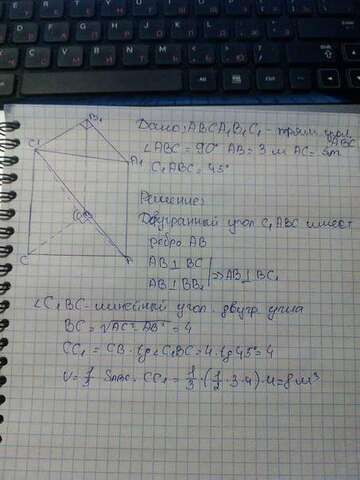 B₁
C₁
A₁
C
Дано: ABCA₁B₁C₁ - прям. 
ABC
∠ABC = 90° AB = 3 м AC = 5м
C₁ABC = 45°
Решение:
Двугранный угол C₁ABC имеет
ребро AB
AB ⊥ BC
AB ⊥ BB₁ |=> AB ⊥ BC₁
∠C₁BC - линейный угол двугр. угла
BC = √AC²-AB² = 4
CC₁ = CB · tg ∠C₁BC = 4 · tg 45° = 4
V = 1/3 S ABC · CC₁ = 1/3 · (1/2 · 3 · 4) · 4 = 8 м³